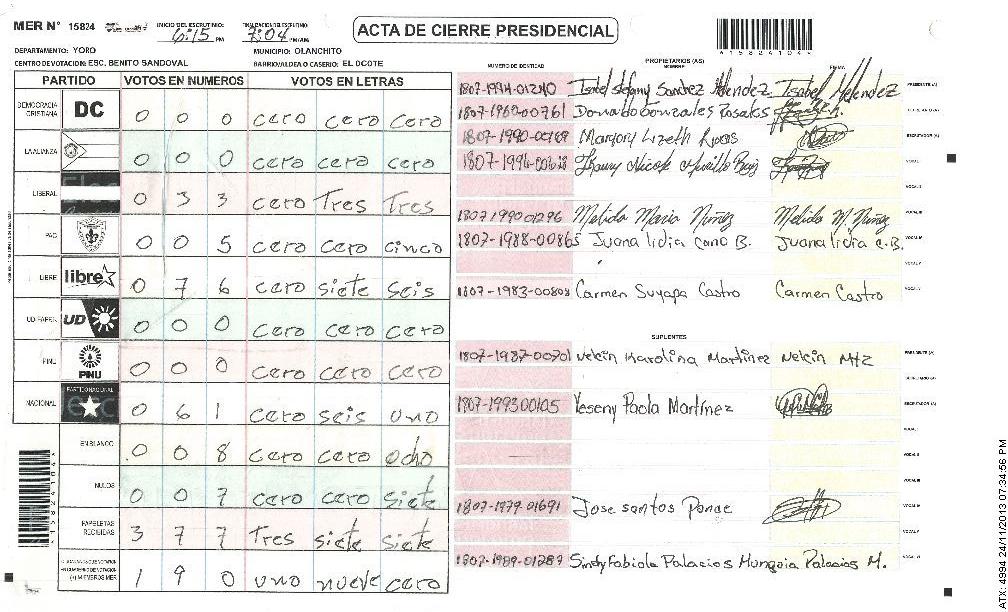 MER N° 15824
INICIO DEL ESCRUTINIO: 6:15 PM
FINALIZACION DEL ESCRUTINIO 7:04 PM/AM
ACTA DE CIERRE PRESIDENCIAL
*15824104*
DEPARTAMENTO: YORO
MUNICIPIO: OLANCHITO
CENTRO DE VOTACION: ESC. BENITO SANDOVAL
BARRIO/ALDEA O CASERIO: EL OCOTE
PARTIDO VOTOS EN NUMEROS VOTOS EN LETRAS
DEMOCRACIA CRISTIANA DC 0 0 0 cero cero cero
LA ALIANZA 0 0 0 cero cero cero
LIBERAL 0 3 3 cero Tres Tres
PAC 0 0 5 cero cero cinco
LIBRE libre 0 7 6 cero siete seis
UD/FAPER UD 0 0 0 cero cero cero
PINU PINU 0 0 0 cero cero cero
NACIONAL PARTIDO NACIONAL 0 6 1 cero seis uno
EN BLANCO 0 0 8 cero cero ocho
NULOS 0 0 7 cero cero siete
PAPELETAS RECIBIDAS 3 7 7 Tres siete siete
(+) MIEMBROS MER 1 9 0 uno nueve cero
*15824104*
PROPIETARIOS (AS)
NUMERO DE IDENTIDAD NOMBRE FIRMA
1807-1994-01240 Isabel stefany Sanchez Melendez Isabel Melendez PRESIDENTE (A)
1807-1962-00761 Donaldo Gonzales Rosales
Margory Lizeth ESCRUTADOR (A)
VOCAL I
VOCAL II
1807 1990 01296 Melida Maria Nuñez Melida M Nuñez VOCAL III
1807-1988-00865 Juana lidia Cano B. Juana lidia C.B. VOCAL IV
VOCAL V
1807-1983-00808 Carmen Suyapa Castro Carmen Castro
SUPLENTES
1807-1987-00701 Nelcin Karolina Martinez Nelcin Mtz PRESIDENTE (A)
SECRETARIO (A)
1807-1993 00105 Yeseny Paola Martínez ESCRUTADOR (A)
VOCAL I
VOCAL II
VOCAL III
1807-1979-01691 Jose santos Ponce
VOCAL V
1807-1989-01289 Sindy Fabiola Palacios Munguia Palacios M. VOCAL VI
ATX: 4994 24/11/2013 07:34:56 PM